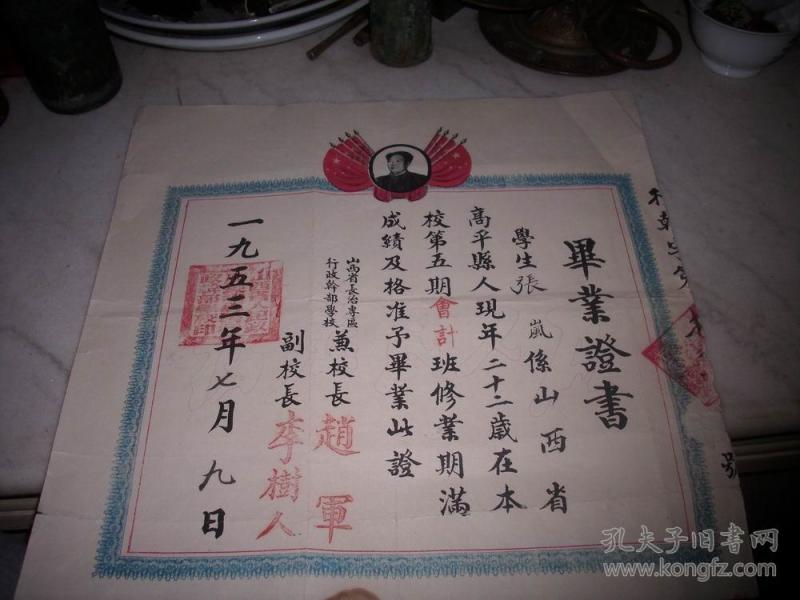 畢業證書
學生張嵐係山西省
高平縣人現年二十二歲在本
校第五期會計班修業期滿
成績及格准予畢業此證
山西省長治專區
行政幹部學校
兼校長 趙軍
副校長 李樹人
一九五三年七月九日
號
孔夫子旧书网
www.kongfz.com